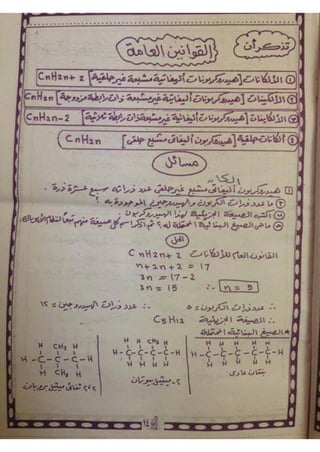 تذكر أن
القوانين العامة
① الألكانات [هيدروكربونات أليفاتية مشبعة غير حلقية] CnH2n+2
② الألكينات [هيدروكربونات أليفاتية غير مشبعة ذات رابطة مزدوجة] CnH2n
③ الألكاينات [هيدروكربونات أليفاتية غير مشبعة ذات رابطة ثلاثية] CnH2n-2
④ ألكانات حلقية [هيدروكربون أليفاتى مشبع حلقى] CnH2n
مسائل
ألكان
هيدروكربون أليفاتى مشبع غير حلقى عدد ذراته سبع عشرة ذرة .
ما عدد ذرات الكربون والهيدروجين الموجودة به ؟
اكتب الصيغة الجزيئية لهذا الهيدروكربون
ما هى الصيغ البنائية المحتملة له ؟ ثم اذكر اسم كل صيغة منهم تبعاً لنظام
الحل
القانون العام للألكانات CnH2n+2
n+2n+2 = 17
3n = 17-2
3n = 15 ∴ n = 5
∴ عدد ذرات الكربون = ٥ ∴ عدد ذرات الهيدروجين = ١٢
∴ الصيغة الجزيئية C5H12
* الصيغ البنائية المحتملة
H H H H H
H-C-C-C-C-C-H
H H H H H
بنتان عادى
H H CH3 H
H-C-C-C-C-H
H H H H
٢- ميثيل بيوتان
H CH3 H
H-C-C-C-H
H CH3 H
٢،٢ ثنائى ميثيل بروبان
١٤